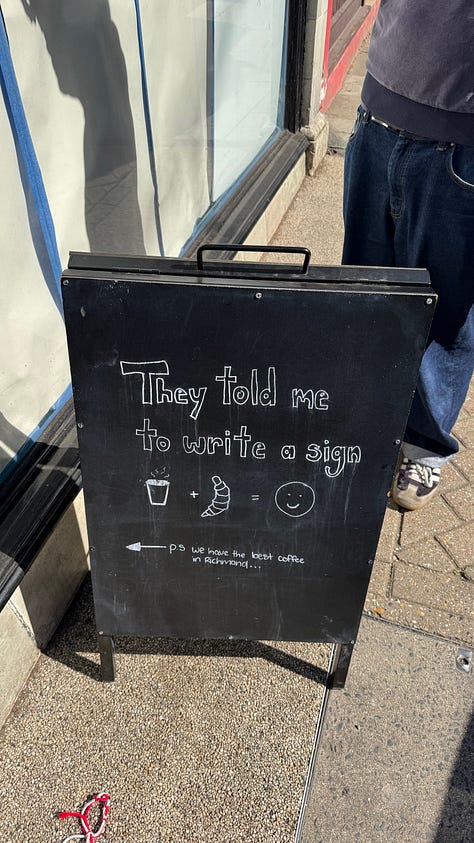 They told me
to write a sign
+ =
p.s we have the best coffee
in Richmond...